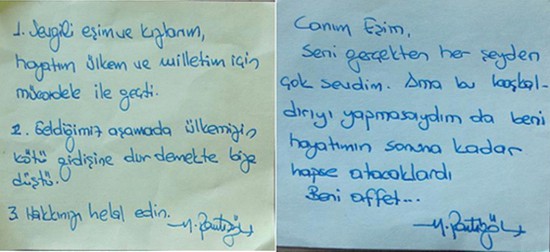 1. Sevgili eşim ve kızlarım,
hayatım ülkem ve milletim için
mücadele ile geçti.
2. Geldiğimiz aşamada ülkemizin
kötü gidişine dur demekte bize
düştü.
3. Hakkınızı helal edin.
Canım Eşim,
Seni gerçekten her şeyden
çok sevdim. Ama bu başkal-
dırıyı yapmasaydım da beni
hayatımın sonuna kadar
hapse atacaklardı
Beni affet...